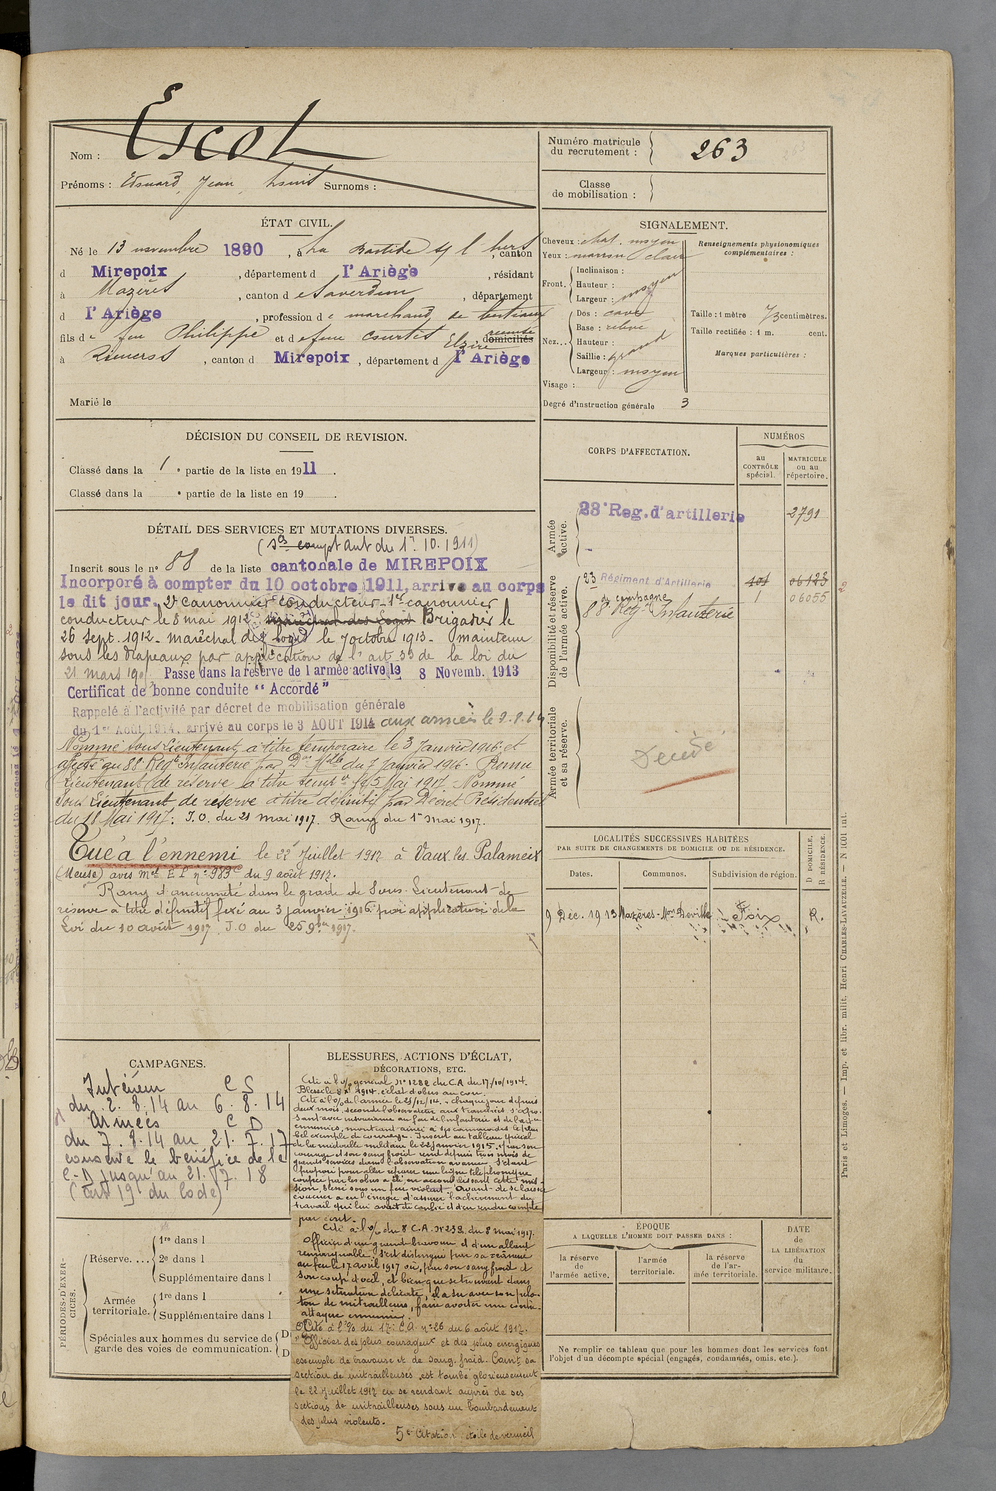 Nom : Escot
Prénoms : Edouard, Jean, Surnoms :
Numéro matricule du recrutement : 263
Classe de mobilisation :
ÉTAT CIVIL.
Né le 13 novembre 1890, à La Bastide s/ l'hers, canton
d Mirepoix, département d l'Ariège, résidant
à Mazères, canton d e Saverdun, département
d l'Ariège, profession d e marchand de bestiaux
fils d e feu Philippe et d e feue Courtet Elzire domiciliés
à , canton d Mirepoix, département d l'Ariège
Marié le
SIGNALEMENT.
Cheveux : chat. moyen
Yeux : marron clair
Front. Inclinaison :
Hauteur :
Largeur : moyen
Nez... Dos : cave
Base : relevé
Hauteur :
Saillie : grand
Largeur : moyen
Visage :
Degré d'instruction générale 3
Renseignements physionomiques complémentaires :
Taille : 1 mètre 73 centimètres.
Taille rectifiée : 1 m. cent.
Marques particulières :
DÉCISION DU CONSEIL DE REVISION.
Classé dans la 1 e partie de la liste en 1911.
Classé dans la e partie de la liste en 19 .
DÉTAIL DES SERVICES ET MUTATIONS DIVERSES.
(Sce comptant du 1er. 10. 1911)
Inscrit sous le n° 88 de la liste cantonale de MIREPOIX
Incorporé à compter du 10 octobre 1911, arrivé au corps
le dit jour. 2e canonnier conducteur - 1er canonnier
conducteur le 8 mai 1912 maréchal des logis Brigadier le
26 Sept. 1912 - maréchal des logis le 7 octobre 1913 - maintenu
sous les drapeaux par application de l'art 33 de la loi du
21 mars 190 Passé dans la réserve de l'armée active le 8 Novemb. 1913
Certificat de bonne conduite "Accordé"
Rappelé à l'activité par décret de mobilisation générale
du 1er Août 1914, arrivé au corps le 3 AOUT 1914 aux armées le 7.8.14
Nommé sous Lieutenant à titre temporaire le 3 Janvier 1916 et
affecté au 88e Regt Infanterie par Don Mlle du 7 Janvier 1916. Promu
Lieutenant de réserve à titre tempre le 5 Mai 1917. Nommé
Sous Lieutenant de réserve à titre définitif par Décret Présidentiel
du 18 Mai 1917. J.O. du 21 mai 1917. Rang du 1er mai 1917.
Tué à l'ennemi le 22 Juillet 1917 à Vaux les Palameix
(Meuse) avis Mel E P n° 983 du 9 août 1917.
Rang d'ancienneté dans le grade de Sous-Lieutenant de
réserve à titre définitif fixé au 3 janvier 1916 par application de la
Loi du 10 août 1917 J.O du 25 9bre 1917.
CORPS D'AFFECTATION.
NUMÉROS
au CONTRÔLE spécial.
MATRICULE ou au répertoire.
Armée active.
23e Reg. d'artillerie 2791
Disponibilité et réserve de l'armée active.
23 Régiment d'Artillerie 404 06123
de campagne 1 06055
88e Regt Infanterie
Armée territoriale et sa réserve.
Décédé
LOCALITÉS SUCCESSIVES HABITÉES
PAR SUITE DE CHANGEMENTS DE DOMICILE OU DE RÉSIDENCE.
Dates. Communes. Subdivision de région. D DOMICILE. R RÉSIDENCE.
9 Déc. 1913 Mazères Foix R.
CAMPAGNES.
Intérieur C S
du 2. 8. 14 au 6. 8. 14
Armées C D
du 7. 8. 14 au 21. 7. 17
conserve le bénéfice de la
C-D jusqu'au 21. 7. 18
(art 19 du code)
BLESSURES, ACTIONS D'ÉCLAT,
DÉCORATIONS, ETC.
Cité à l'o/ général N° 1288 du C.A du 17/10/1914.
Cité à l'o/ de l'armée le
deux mois, seconde l'observateur aux tranchées s'expo-
sant avec insouciance au feu de l'infanterie et de l'artil-
bel exemple de courage. Inscrit au tableau spécial
de la médaille militaire le 22 janvier 1915, par son
courage et son sang froid rend depuis trois mois de
grands services dans l'observation avancée. S'étant
proposé pour aller réparer une ligne téléphonique
coupée par les obus a été en accomplissant cette mis-
sion, blessé sous un feu violent. Avant de se laisser
évacuer a eu l'énergie d'assurer l'achèvement du
travail qui lui avait été confié et d'en rendre compte
Cité à l'o/ du 8 C.A. N° 238 du 8 mai 1917.
Officier d'une grande bravoure et d'un allant
remarquable, s'est distingué par sa tenue
au feu le 17 avril 1917 où, par son sang froid et
son coup d'œil, et bien que se trouvant dans
une situation délicate, il a su avec son pelo-
ton de mitrailleurs, faire avorter une contre
attaque ennemie.
Cité à l'o/ du 17e C.A. n° 26 du 6 août 1917.
"Officier des plus courageux et des plus énergiques
exemple de bravoure et de sang froid. Comt sa
section de mitrailleuses est tombé glorieusement
le 22 juillet 1917 en se rendant auprès de ses
sections de mitrailleuses sous un bombardement
des plus violents.
5e citation étoile de vermeil
PÉRIODES D'EXERCICES.
Réserve.... 1re dans l
2e dans l
Supplémentaire dans l
Armée territoriale. 1re dans l
Supplémentaire dans l
Spéciales aux hommes du service de garde des voies de communication. D
D
ÉPOQUE
A LAQUELLE L'HOMME DOIT PASSER DANS :
la réserve de l'armée active.
l'armée territoriale.
la réserve de l'armée territoriale.
DATE DE LA LIBÉRATION du service militaire.
Ne remplir ce tableau que pour les hommes dont les services font
l'objet d'un décompte spécial (engagés, condamnés, omis, etc.).
Paris et Limoges. — Imp. et libr. milit. Henri CHARLES-LAVAUZELLE. — N 1001 int.